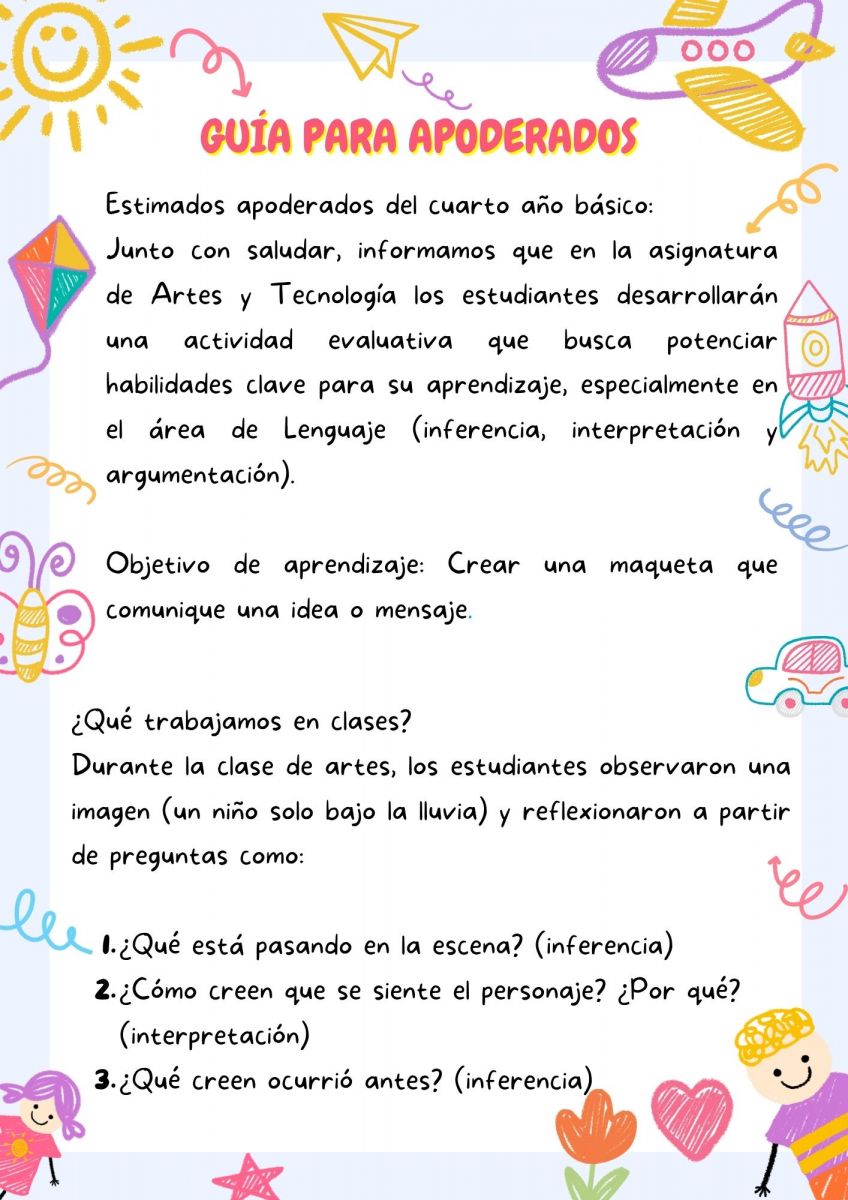 GUÍA PARA APODERADOS
Estimados apoderados del cuarto año básico:
Junto con saludar, informamos que en la asignatura
de Artes y Tecnología los estudiantes desarrollarán
una actividad evaluativa que busca potenciar
habilidades clave para su aprendizaje, especialmente en
el área de Lenguaje (inferencia, interpretación y
argumentación).
Objetivo de aprendizaje: Crear una maqueta que
comunique una idea o mensaje.
¿Qué trabajamos en clases?
Durante la clase de artes, los estudiantes observaron una
imagen (un niño solo bajo la lluvia) y reflexionaron a partir
de preguntas como:
1. ¿Qué está pasando en la escena? (inferencia)
2. ¿Cómo creen que se siente el personaje? ¿Por qué?
(interpretación)
3. ¿Qué creen ocurrió antes? (inferencia)